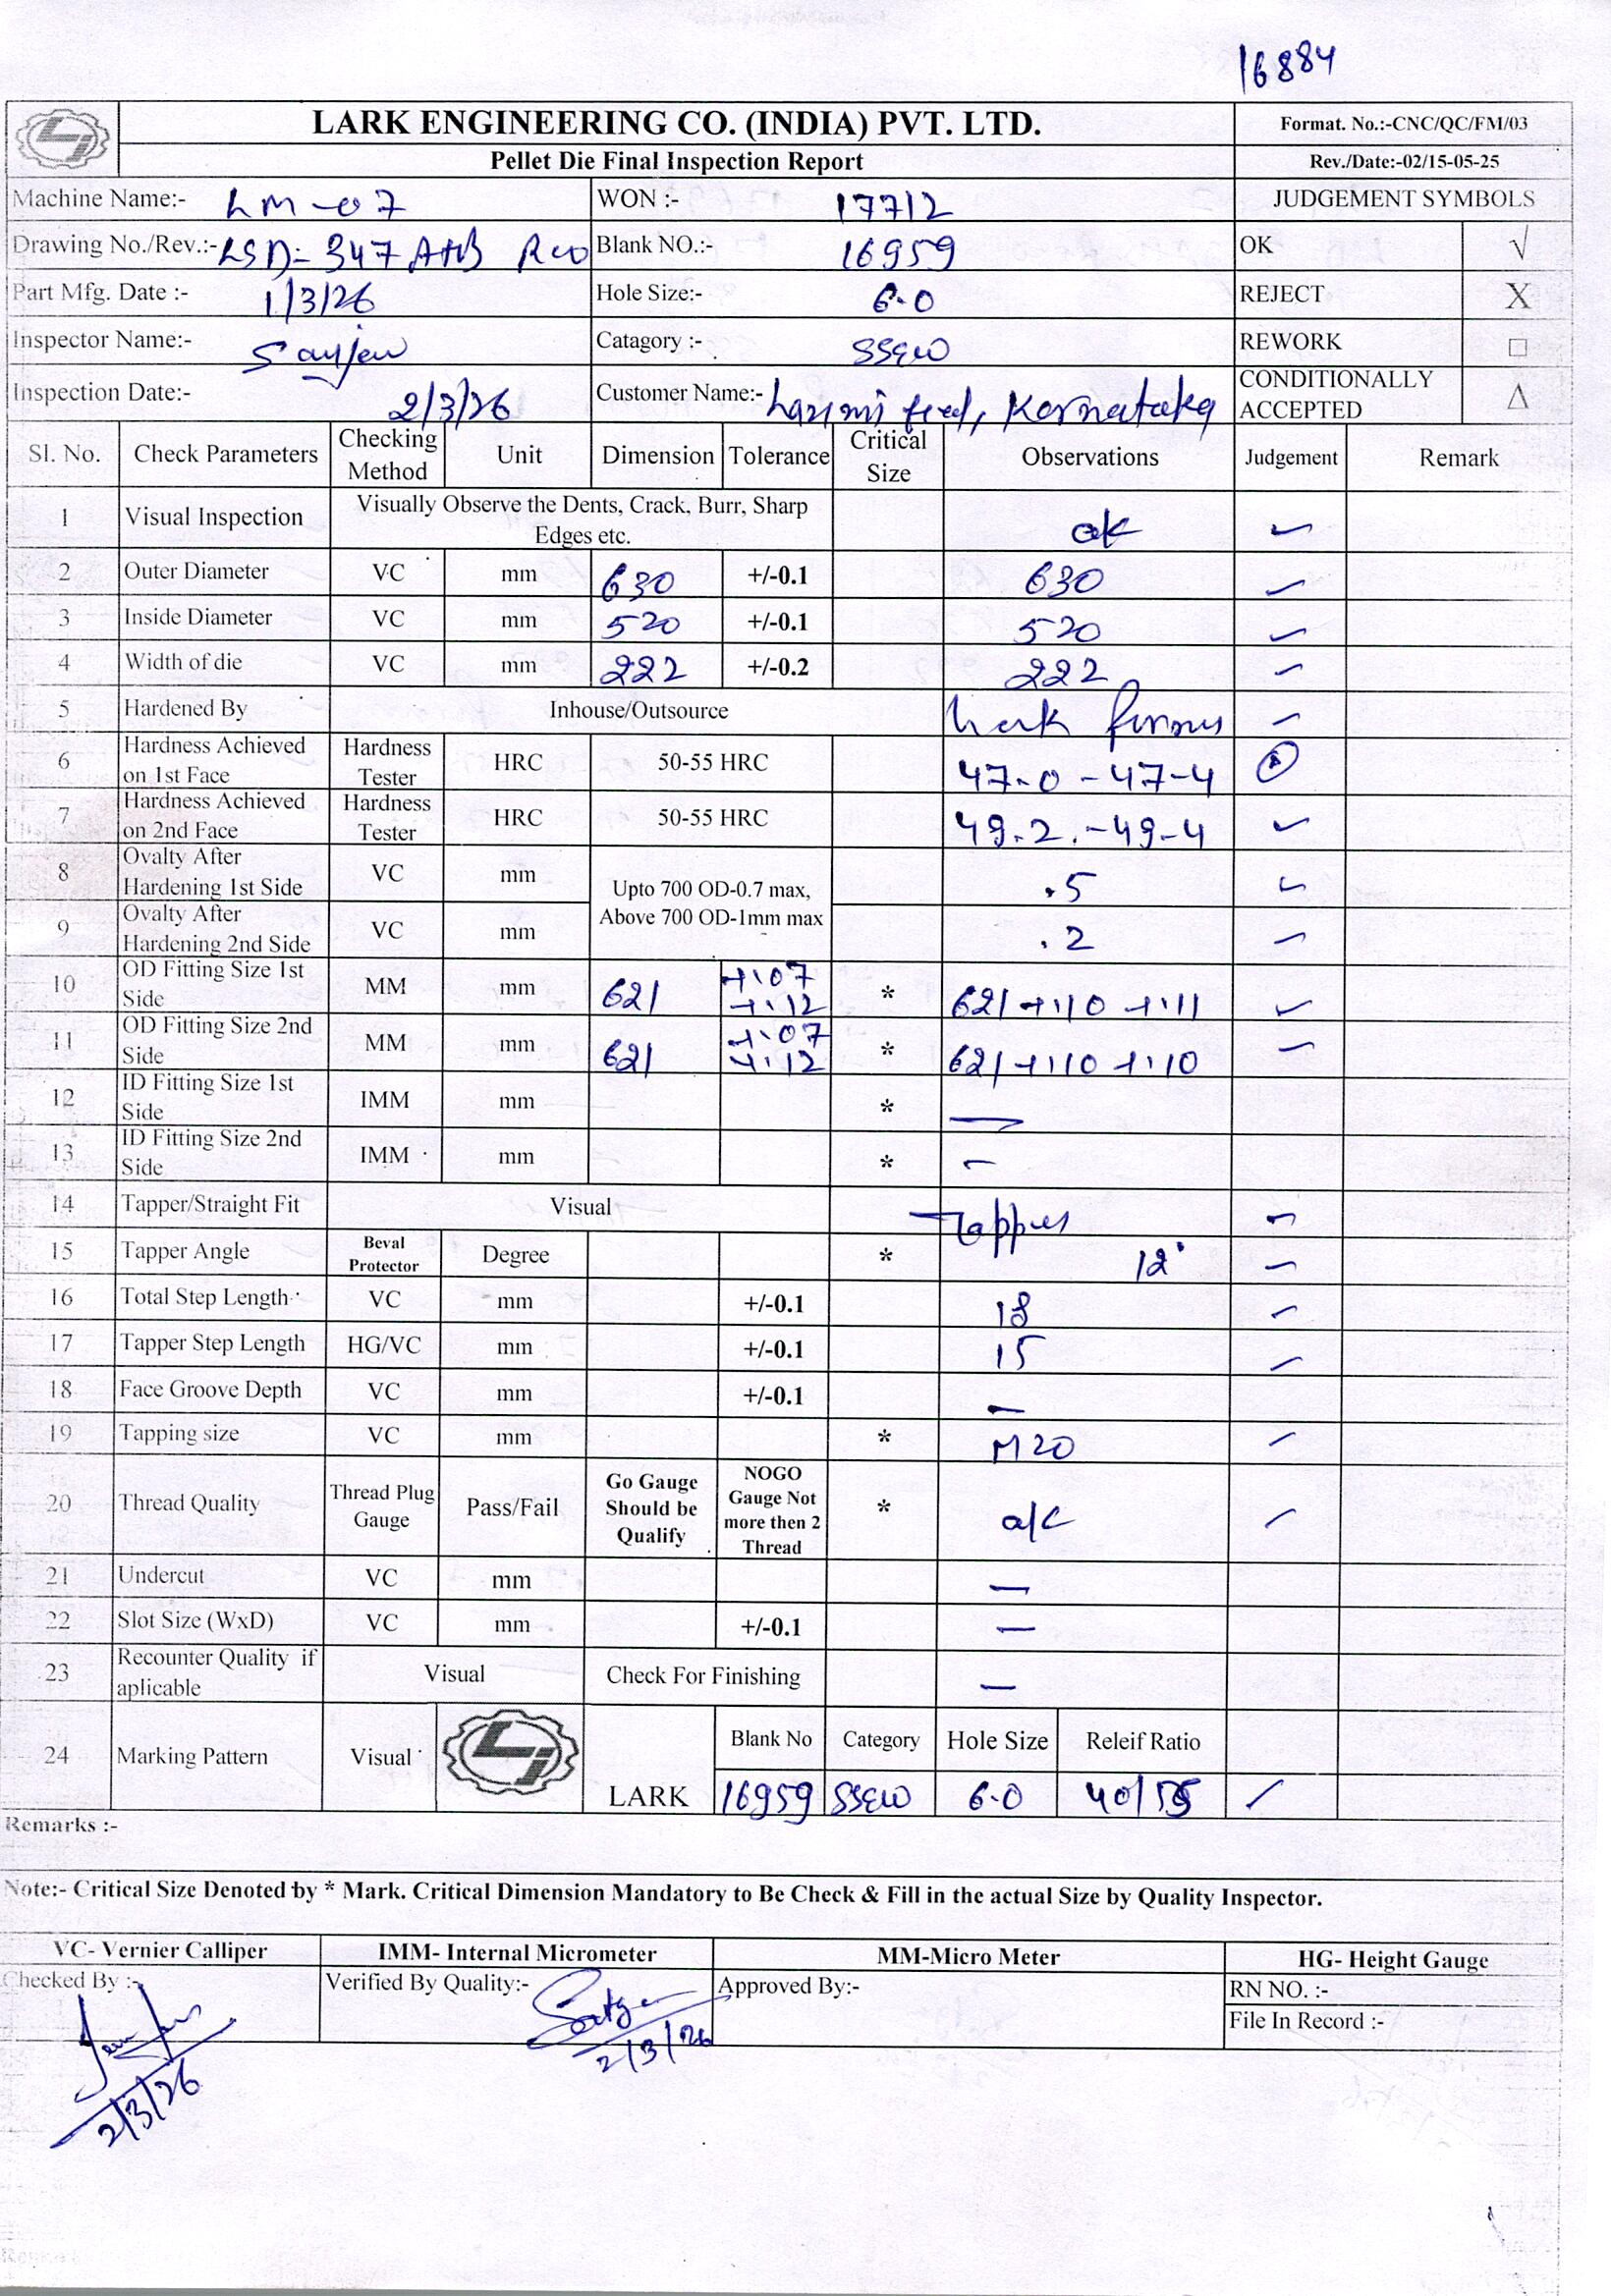 16884
LARK ENGINEERING CO. (INDIA) PVT. LTD.
Format. No.:-CNC/QC/FM/03
Pellet Die Final Inspection Report
Rev./Date:-02/15-05-25
Machine Name:- LM-07 WON :- 17712 JUDGEMENT SYMBOLS
Drawing No./Rev.:- LSD-347 A+B R00 Blank NO.:- 16959 OK √
Part Mfg. Date :- 1/3/26 Hole Size:- 6.0 REJECT X
Inspector Name:- Catagory :- REWORK □
Inspection Date:- 2/3/26 Customer Name:- feed, Karnataka CONDITIONALLY ACCEPTED Δ
Sl. No. Check Parameters Checking Method Unit Dimension Tolerance Critical Size Observations Judgement Remark
1 Visual Inspection Visually Observe the Dents, Crack, Burr, Sharp Edges etc. ok ✓
2 Outer Diameter VC mm 630 +/-0.1 630 ✓
3 Inside Diameter VC mm 520 +/-0.1 520 ✓
4 Width of die VC mm 222 +/-0.2 222 ✓
5 Hardened By Inhouse/Outsource ✓
6 Hardness Achieved on 1st Face Hardness Tester HRC 50-55 HRC 47.0 - 47-4
7 Hardness Achieved on 2nd Face Hardness Tester HRC 50-55 HRC 49.2.-49-4 ✓
8 Ovalty After Hardening 1st Side VC mm Upto 700 OD-0.7 max, Above 700 OD-1mm max .5 ✓
9 Ovalty After Hardening 2nd Side VC mm .2 ✓
10 OD Fitting Size 1st Side MM mm 621 +.07 +.12 * 621 +.10 +.11 ✓
11 OD Fitting Size 2nd Side MM mm 621 +.07 +.12 * 621 +.10 +.10 ✓
12 ID Fitting Size 1st Side IMM mm * —
13 ID Fitting Size 2nd Side IMM mm * —
14 Tapper/Straight Fit Visual Tapper ✓
15 Tapper Angle Beval Protector Degree * 12° ✓
16 Total Step Length VC mm +/-0.1 18 ✓
17 Tapper Step Length HG/VC mm +/-0.1 15 ✓
18 Face Groove Depth VC mm +/-0.1 —
19 Tapping size VC mm * M20 ✓
20 Thread Quality Thread Plug Gauge Pass/Fail Go Gauge Should be Qualify NOGO Gauge Not more then 2 Thread * ✓
21 Undercut VC mm —
22 Slot Size (WxD) VC mm +/-0.1 —
23 Recounter Quality if aplicable Visual Check For Finishing —
24 Marking Pattern Visual LARK Blank No Category Hole Size Releif Ratio
16959 6.0 ✓
Remarks :-
Note:- Critical Size Denoted by * Mark. Critical Dimension Mandatory to Be Check & Fill in the actual Size by Quality Inspector.
VC- Vernier Calliper IMM- Internal Micrometer MM-Micro Meter HG- Height Gauge
Checked By :- Verified By Quality:- Approved By:- RN NO. :-
File In Record :-
2/3/26
2/3/26